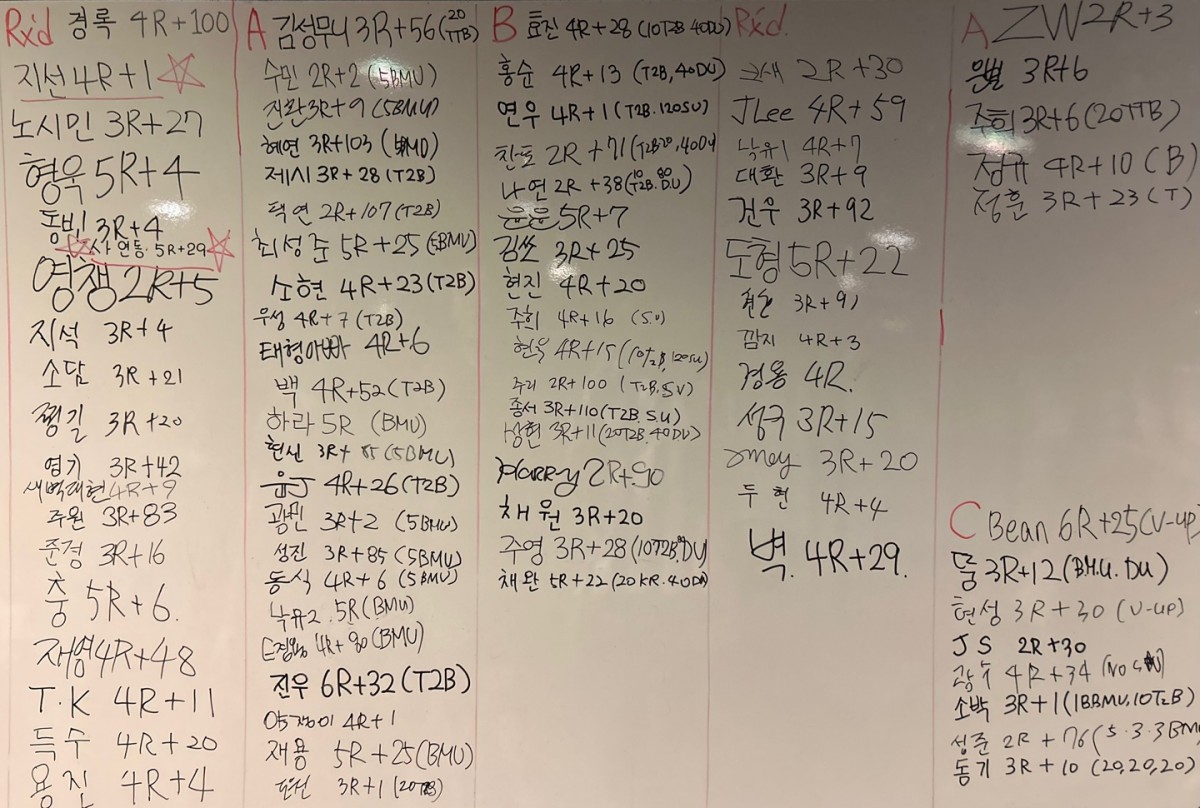 Rx'd 경록 4R+100
지선 4R+1
노시민 3R+27
형욱 5R+4
동빈 3R+4
사연동. 5R+29
영챙 2R+5
지석 3R+4
소담 3R+21
찡길 3R+20
영기 3R+42
새벽대현 4R+9
주원 3R+83
준경 3R+16
충 5R+6.
재영 4R+48
T.K 4R+11
득수 4R+20
용진 4R+4
A 김성무니 3R+56 (20 TTB)
수민 2R+2 (5BMU)
진환 3R+9 (5BMU)
혜연 3R+103
제시 3R+28 (T2B)
택연 2R+107 (T2B)
최성준 5R+25 (5BMU)
소현 4R+23 (T2B)
우성 4R+7 (T2B)
태형아빠 4R+6
백 4R+52 (T2B)
하라 5R (BMU)
현신 3R+85 (5BMU)
윤J 4R+26 (T2B)
광민 3R+2 (5BMU)
성진 3R+85 (5BMU)
동식 4R+6 (5BMU)
낙유2. 5R (BMU)
4R+80 (BMU)
진우 6R+32 (T2B)
4R+1
재용 5R+25 (BMU)
3R+1
B 효진 4R+28 (10T2B 40DU)
홍순 4R+13 (T2B, 40DU)
연우 4R+1 (T2B. 120SU)
찬호 2R+71
나연 2R+38
윤윤 5R+7
김쏘 3R+25
현진 4R+20
주희 4R+16 (S.U)
현욱 4R+15 (10T2B, 120SU)
주리 2R+100 (T2B. SU)
종서 3R+110 (T2B. S.U)
상현 3R+11 (20T2B. 40DU)
Harry 2R+90
채원 3R+20
주영 3R+28
채완 5R+22 (20KR. 40DU)
Rx'd.
2R+30
JLee 4R+59
낙유1 4R+7
대환 3R+9
건우 3R+92
도형 5R+22
3R+91
깜지 4R+3
경용 4R.
성국 3R+15
3R+20
두현 4R+4
벽. 4R+29.
A ZW 2R+3
은별 3R+6
주희 3R+6 (20TTB)
정규 4R+10 (B)
정훈 3R+23 (T)
C Bean 6R+25 (V-up)
뭉 3R+12 (B.M.U. DU)
현성 3R+30 (V-up)
JS 2R+30
광수 4R+34
소박 3R+1 (1BBMU, 10T2B)
성준 2R+76 (5.3.3BMU
동기 3R+10 (20,20,20)